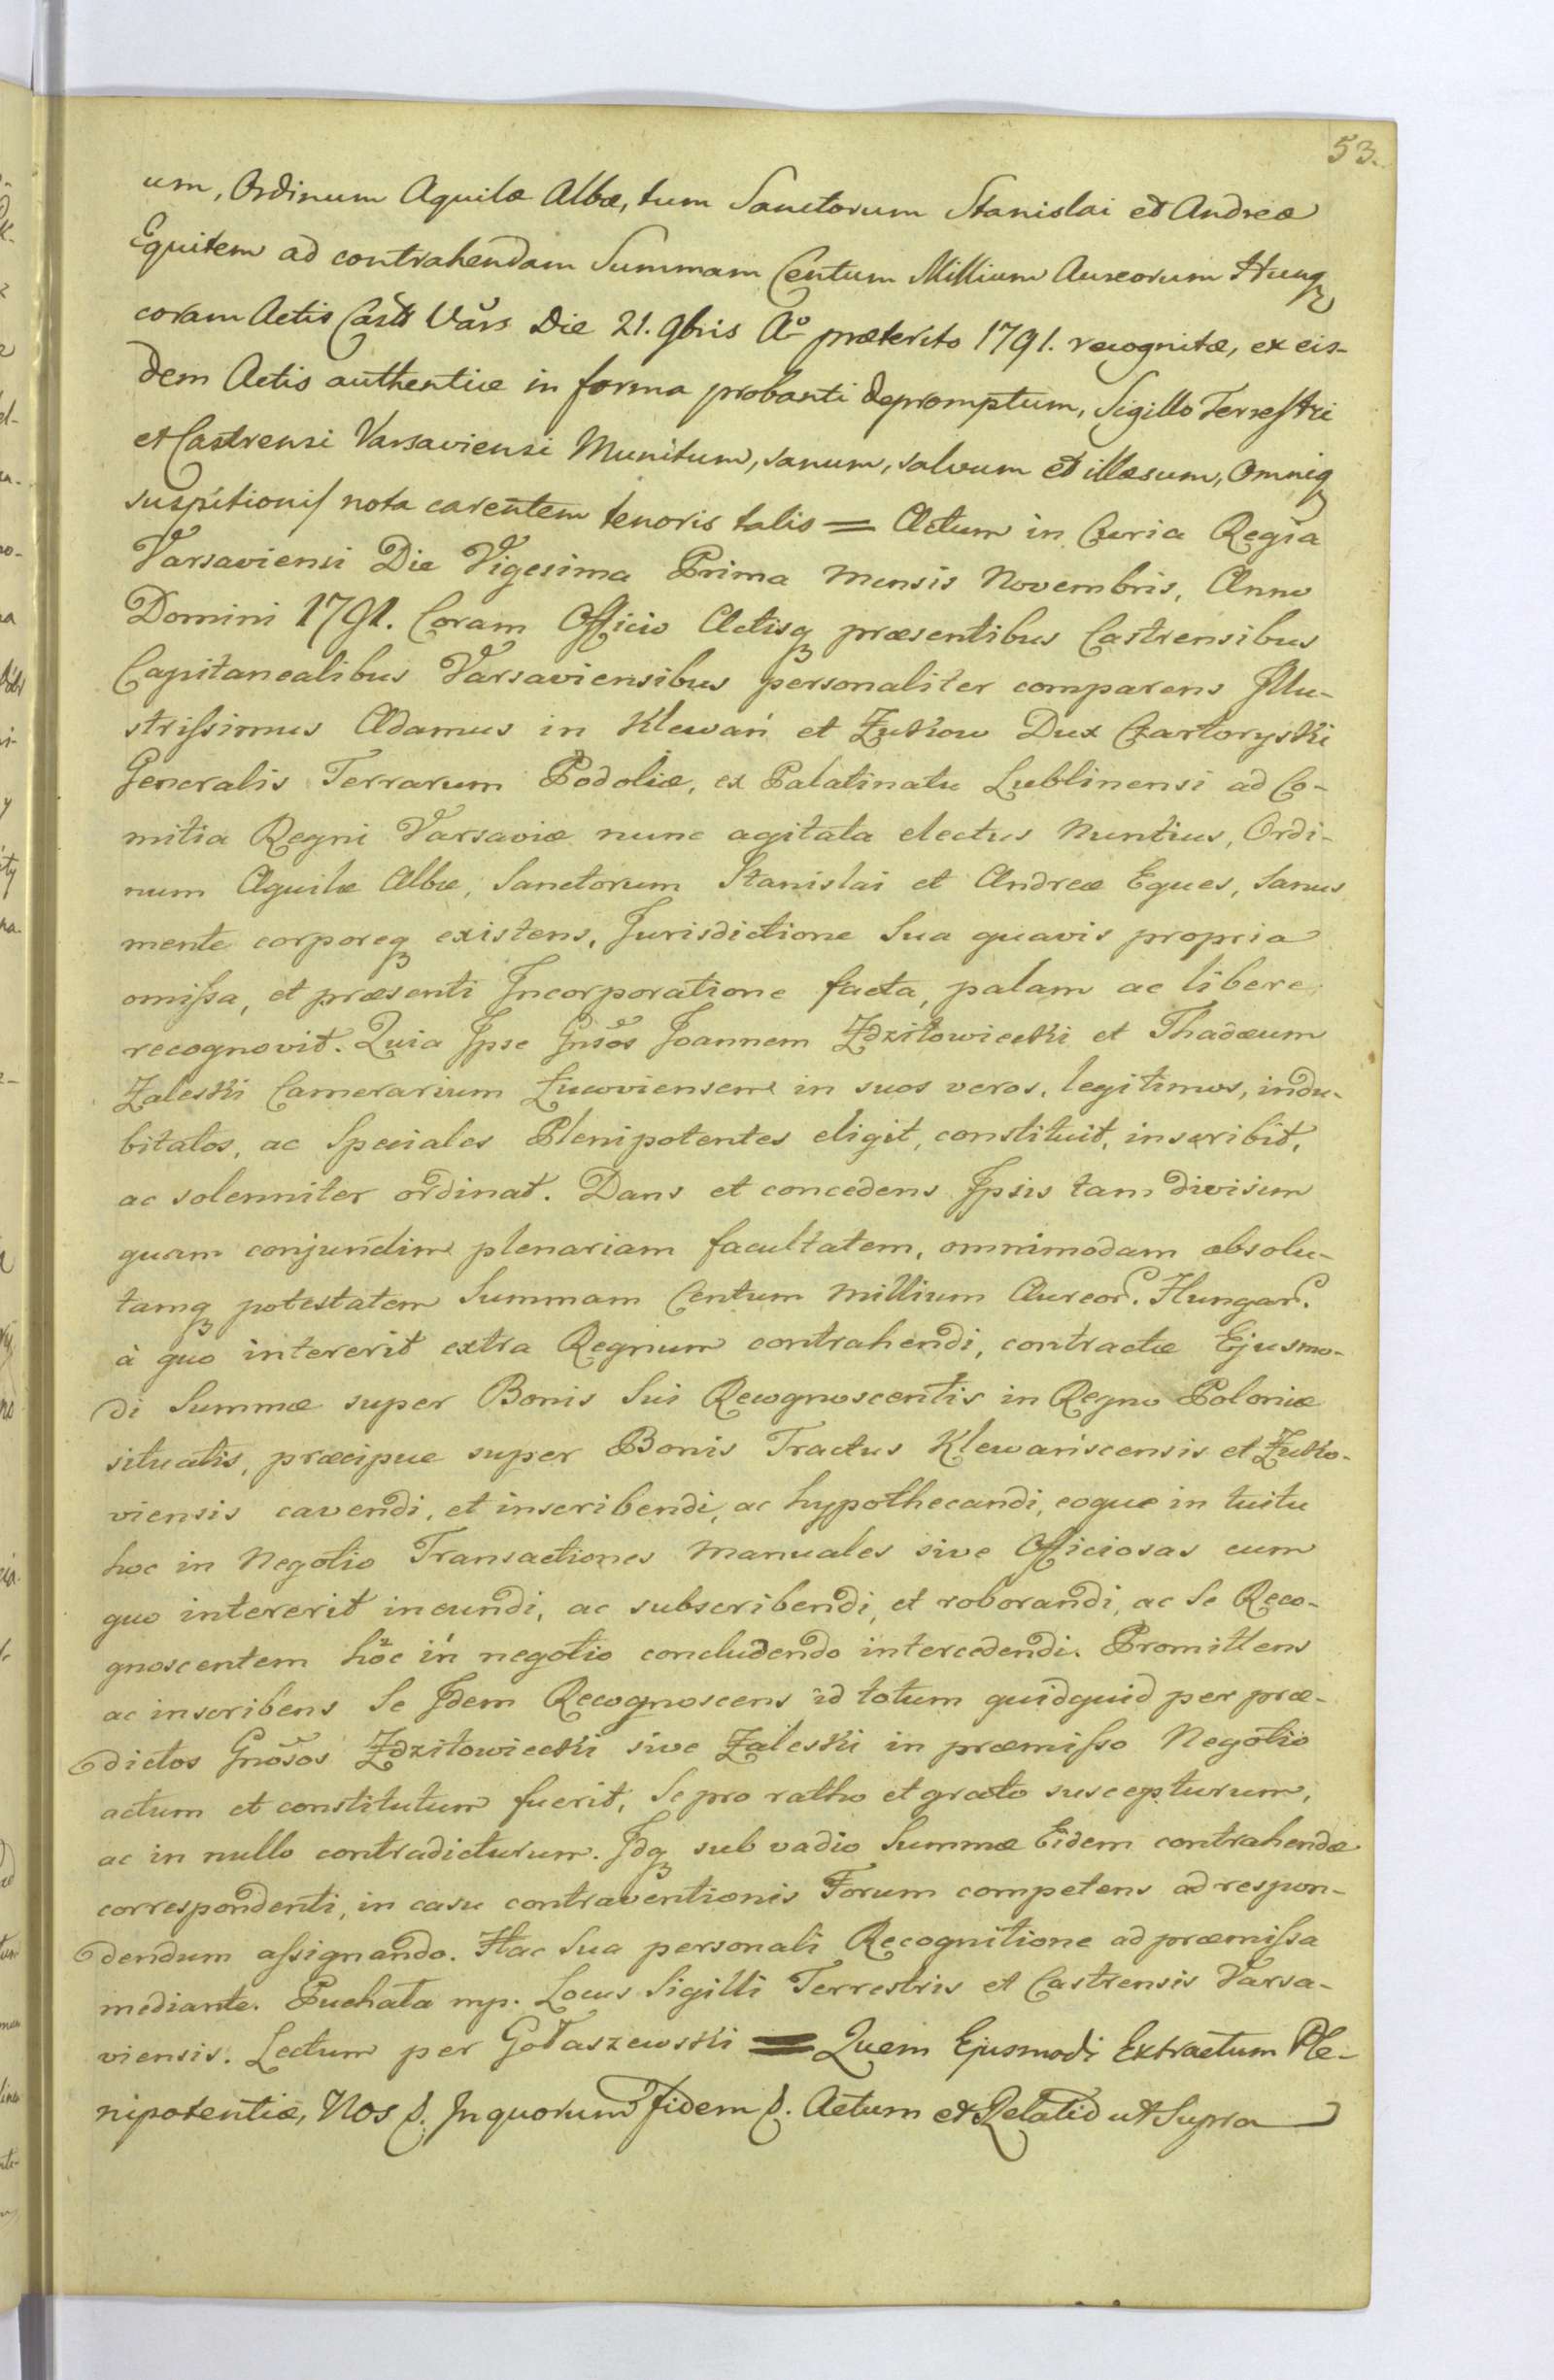 53.
um, Ordinum Aquilæ Albæ, tum Sanctorum Stanislai et Andreæ
Equitem ad contrahendam Summam Centum Millium Aureorum Hungꝫ
coram Actis Casts Vars Die 21. 9bris Ao præterito 1791. recognitæ, ex eis-
dem Actis authentice in forma probanti depromptum, Sigillo Terrestri
et Castrensi Varsaviensi Munitum, sanum, salvum et illæsum, Omniqꝫ
suspitionis nota carentem tenoris talis = Actum in Curia Regia
Varsaviensi Die Vigesima Prima Mensis Novembris, Anno
Domini 1791. Coram Officio Actisqꝫ præsentibus Castrensibus
Capitanealibus Varsaviensibus personaliter comparens Illu-
strissimus Adamus in Klewań et Żukow Dux Czartoryski
Generalis Terrarum Podoliæ, ex Palatinatu Lublinensi ad Co-
mitia Regni Varsaviæ nunc agitata electus Nuntius, Ordi-
num Aquilæ Albæ, Sanctorum Stanislai et Andreæ Eques, Sanus
mente corporeqꝫ existens, Jurisdictione Sua quavis propria
omissa, et præsenti Incorporatione facta, palam ac libere
recognovit. Quia Ipse Gnsos Joannem Zdzitowiecki et Thadæum
Zaleski Camerarium Łucoviensem in suos veros, legitimos, indu-
bitatos, ac Speciales Plenipotentes eligit, constituit, inscribit,
ac solenniter ordinat. Dans et concedens Ipsis tam divisim
quam conjunctim plenariam facultatem, omnimodam absolu-
tamqꝫ potestatem Summam Centum Millium Aureor. Hungar.
à quo intererit extra Regnum contrahendi, contractæ Ejusmo-
di Summæ super Bonis Sui Recognoscentis in Regno Poloniæ
situatis, præcipue super Bonis Tractus Klewaniscensis et Żuko-
viensis cavendi, et inscribendi, ac hypothecandi, eoque in tuitu
hoc in Negotio Transactiones Manuales sive Officiosas cum
quo intererit ineundi, ac subscribendi, et roborandi, ac Se Reco-
gnoscentem hoc in negotio concludendo intercedendi. Promittens
ac inscribens Se Idem Recognoscens id totum quidquid per præ-
dictos Gnosos Zdzitowiecki sive Zaleski in præmisso Negotio
actum et constitutum fuerit, Se pro ratho et grato suscepturum,
ac in nullo contradicturum. Idqꝫ sub vadio Summæ Eidem contrahendæ
correspondenti, in casu contraventionis Forum competens ad respon-
dendum assignando. Hac Sua personali Recognitione ad præmissa
mediante. Puchała mp. Locus Sigilli Terrestris et Castrensis Varsa-
viensis. Lectum per Gołaszewski = Quem Ejusmodi Extractum Ple-
nipotentiæ, Nos &. In quorum fidem &. Actum et Relatio ut Supra